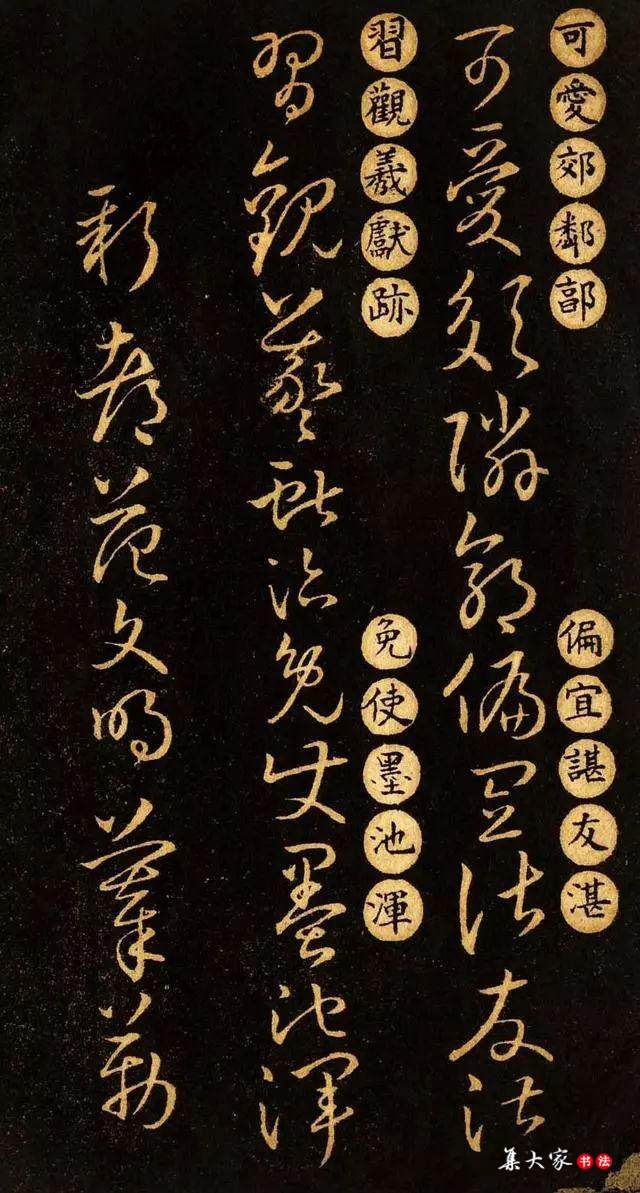 可愛郊鄰部
偏宜諶友湛
可愛郊鄰部偏宜諶友湛
習觀羲獻跡
免使墨池渾
習觀羲獻跡免使墨池渾
新都范文明摹勒
集大家书法